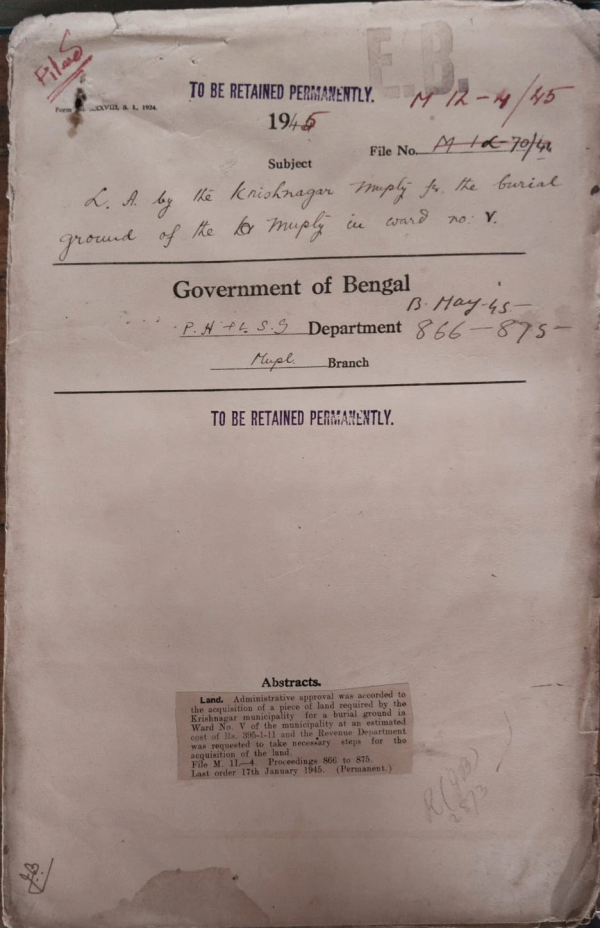 Filed
E.B.
TO BE RETAINED PERMANENTLY.
M 12-4/45
XXVIII, S. I., 1924.
1945
File No. M 1 L-70/44
Subject
L. A. by the Krishnagar Muply for the burial
ground of the Muply in ward no: V.
Government of Bengal
B. May-45-
P. H & L. S. G Department 866-875-
Mupl. Branch
TO BE RETAINED PERMANENTLY.
Abstracts.
Land. Administrative approval was accorded to
the acquisition of a piece of land required by the
Krishnagar municipality for a burial ground in
Ward No. V of the municipality at an estimated
cost of Rs. 395-1-11 and the Revenue Department
was requested to take necessary steps for the
acquisition of the land.
File M. 1L—4. Proceedings 866 to 875.
Last order 17th January 1945. (Permanent.)